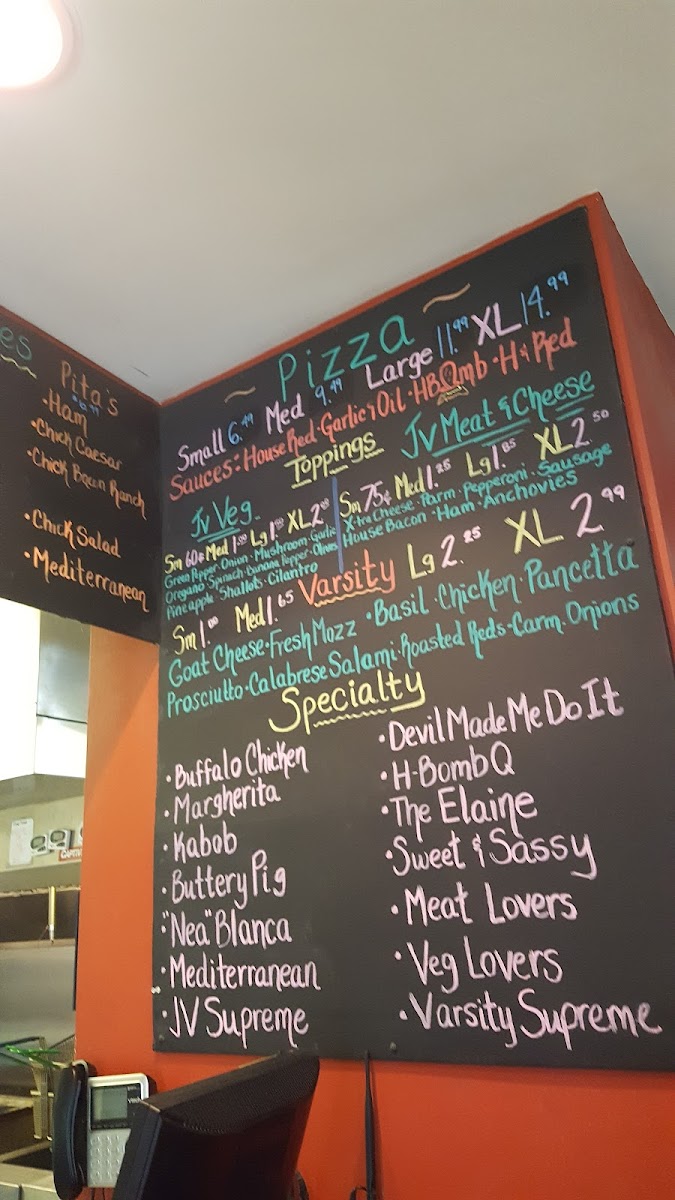 es
Pita's
•Ham
•Chick Caesar
•Chick Bacon Ranch
•Chick Salad
•Mediterranean
~ Pizza ~
Small 6.49 Med 9.99 Large 11.99 XL 14.99
Sauces: House Red • Garlic & Oil • HBQmb • H & Red
Toppings
JV Veg.
Sm 60¢ Med 1.00 Lg XL 2.00
Green Pepper • Onion • Mushroom • Garlic
Oregano • Spinach • Banana Pepper • Olives
Pineapple • Shallots • Cilantro
JV Meat & Cheese
Sm 75¢ Med 1.25 Lg 1.85 XL 2.50
X-tra Cheese • Parm • Pepperoni • Sausage
House Bacon • Ham • Anchovies
Varsity
Sm 1.00 Med 1.65 Lg 2.25 XL 2.99
Goat Cheese • Fresh Mozz • Basil • Chicken • Pancetta
Prosciutto • Calabrese Salami • Roasted Reds • Carm. Onions
Specialty
•Buffalo Chicken
•Margherita
•Kabob
•Buttery Pig
•"Nea" Blanca
•Mediterranean
•JV Supreme
•Devil Made Me Do It
•H-Bomb Q
•The Elaine
•Sweet & Sassy
•Meat Lovers
•Veg Lovers
•Varsity Supreme